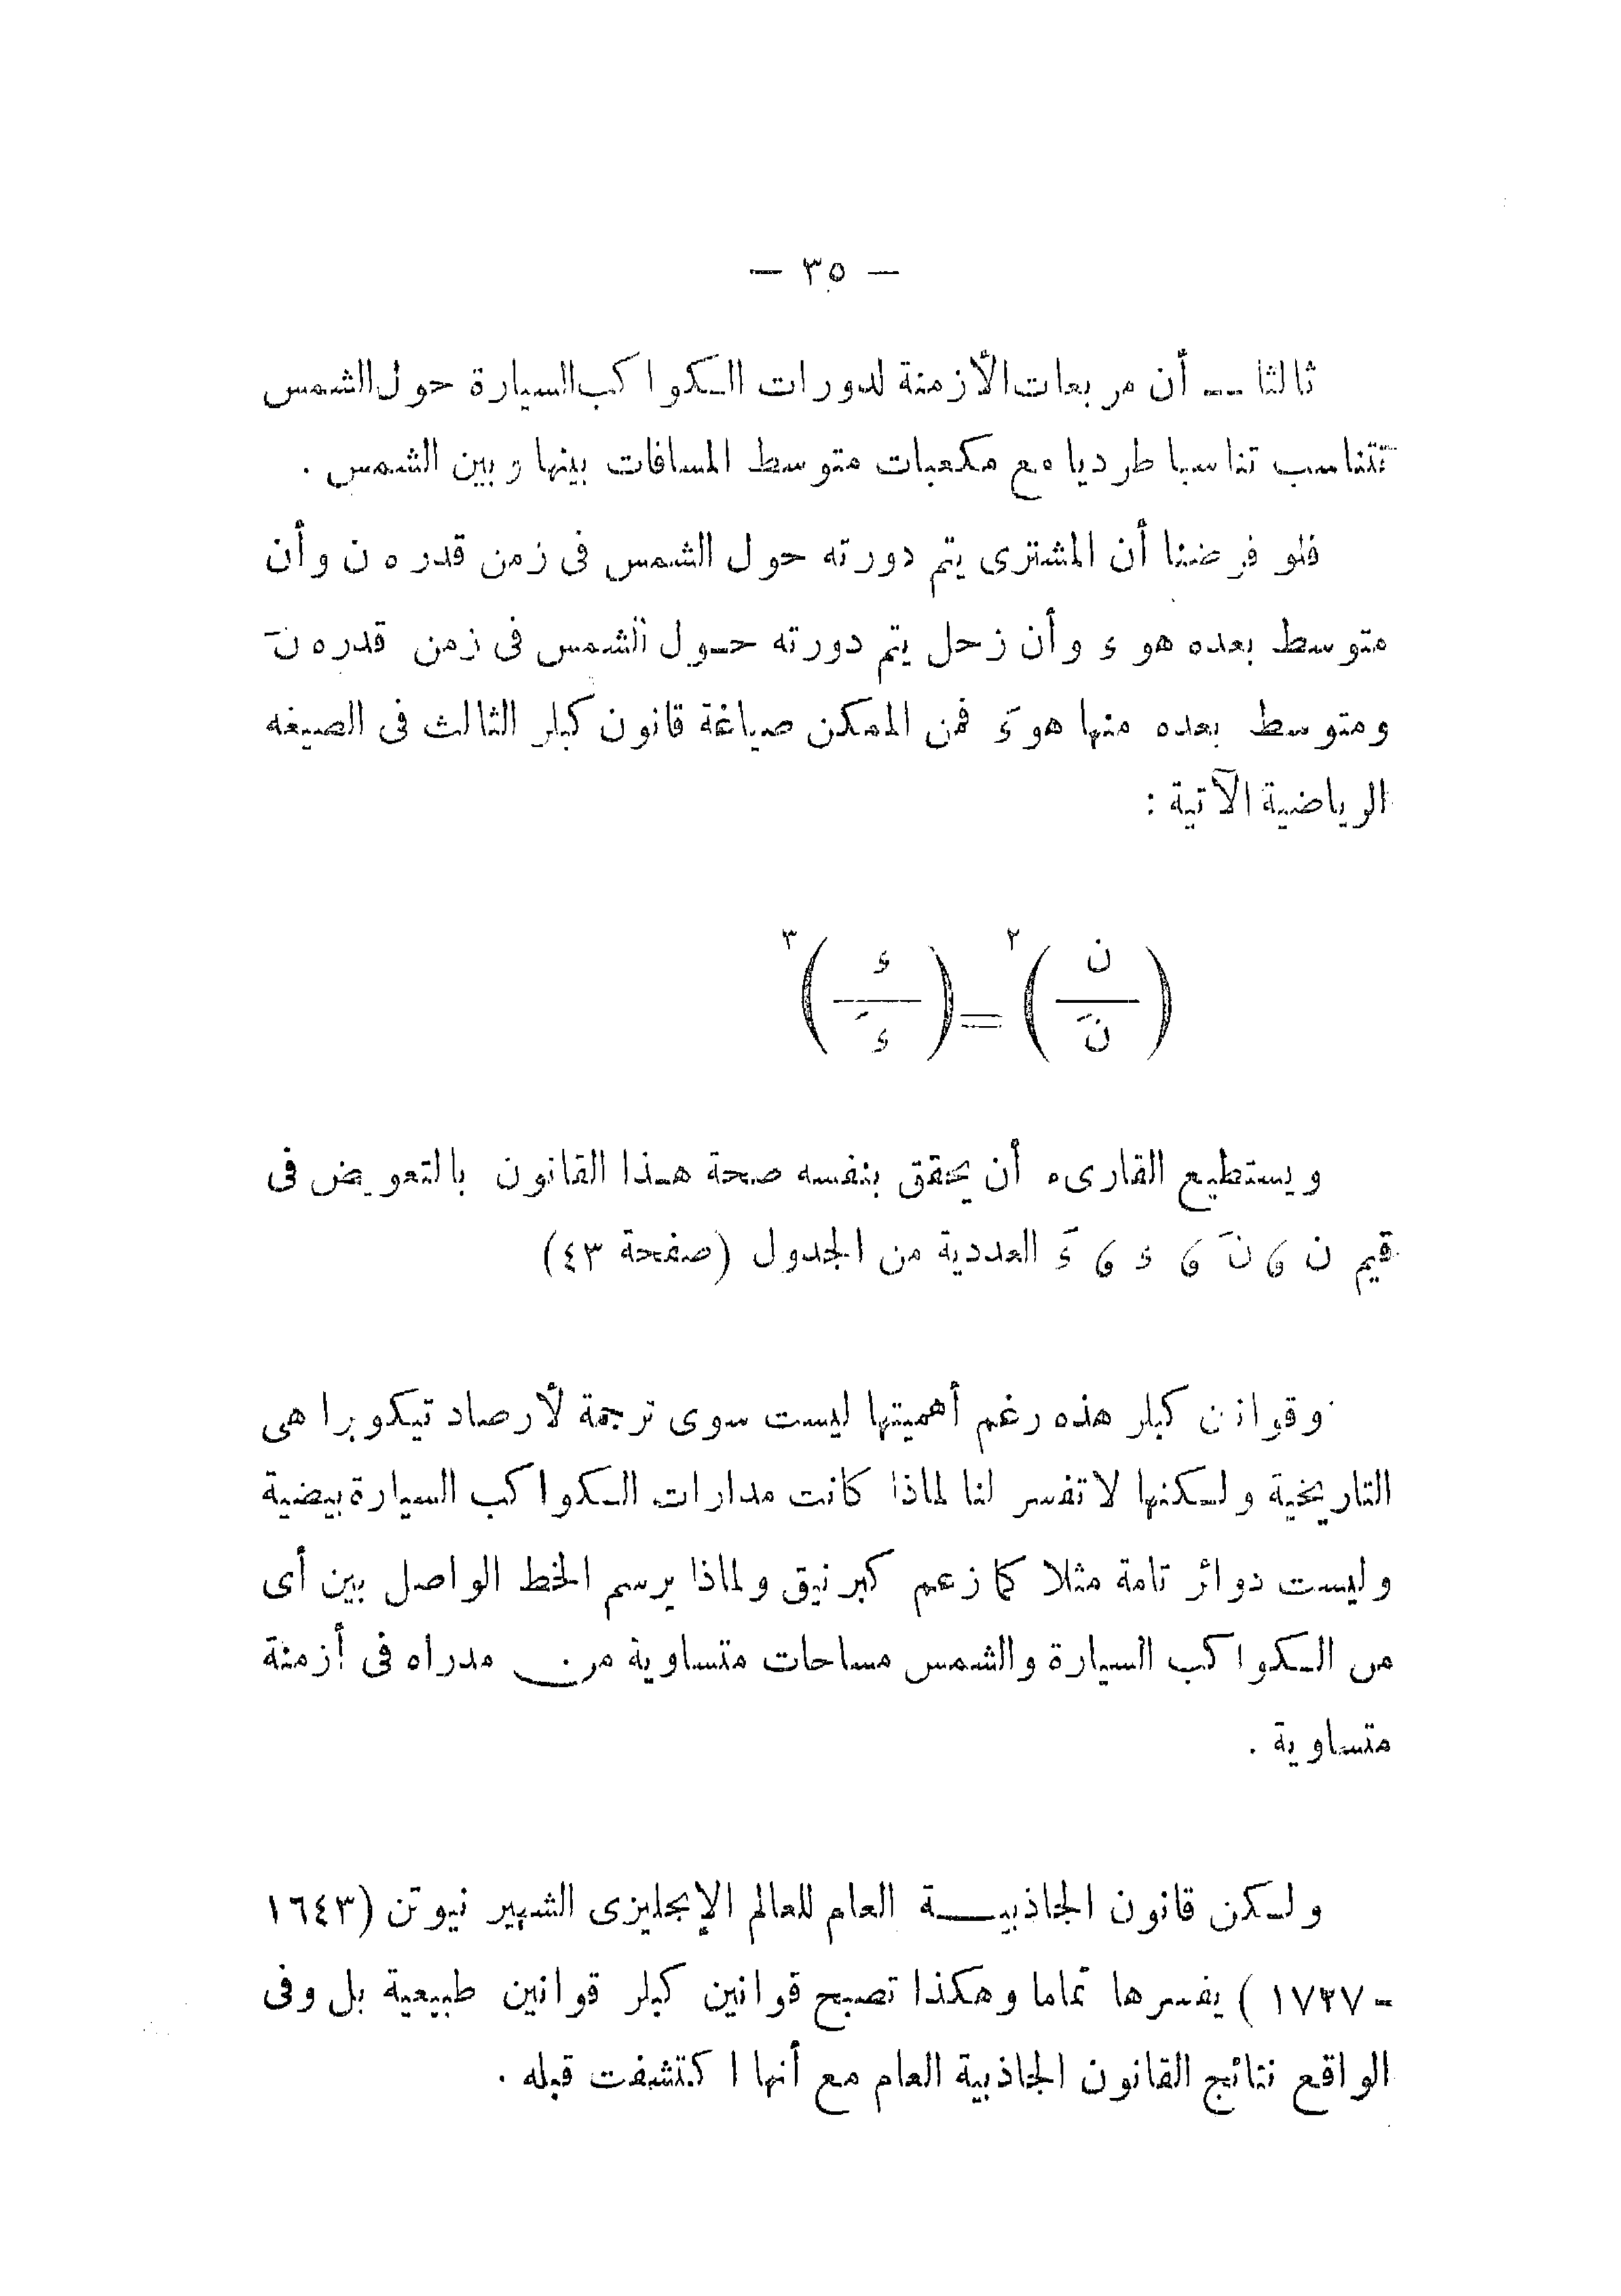 — ٣٥ —
ثالثا — أن مربعات الأزمنة لدورات الكواكب السيارة حول الشمس
تتناسب تناسبا طرديا مع مكعبات متوسط المسافات بينها وبين الشمس .
فلو فرضنا أن المشترى يتم دورته حول الشمس فى زمن قدره ن وأن
متوسط بعده هو ء وأن زحل يتم دورته حول الشمس فى زمن قدره نَ
ومتوسط بعده منها هو ءَ فمن الممكن صياغة قانون كبلر الثالث فى الصيغه
الرياضية الآتية :
(ن / نَ)٢ = (ء / ءَ)٣
ويستطيع القارىء أن يحقق بنفسه صحة هذا القانون بالتعويض فى
قيم ن ، نَ ، ء ، ءَ العددية من الجدول (صفحة ٤٣)
وقوانن كبلر هذه رغم أهميتها ليست سوى ترجمة لأرصاد تيكوبراهى
التاريخية ولكنها لا تفسر لنا لماذا كانت مدارات الكواكب السيارة بيضية
وليست دوائر تامة مثلا كما زعم كبرنيق ولماذا يرسم الخط الواصل بين أى
من الكواكب السيارة والشمس مساحات متساوية من مدراه فى أزمنة
متساوية .
ولكن قانون الجاذبية العام للعالم الإنجليزى الشهير نيوتن (١٦٤٣
- ١٧٢٧ ) يفسرها تماما وهكذا تصبح قوانين كبلر قوانين طبيعية بل وفى
الواقع نتائج القانون الجاذبية العام مع أنها اكتشفت قبله .